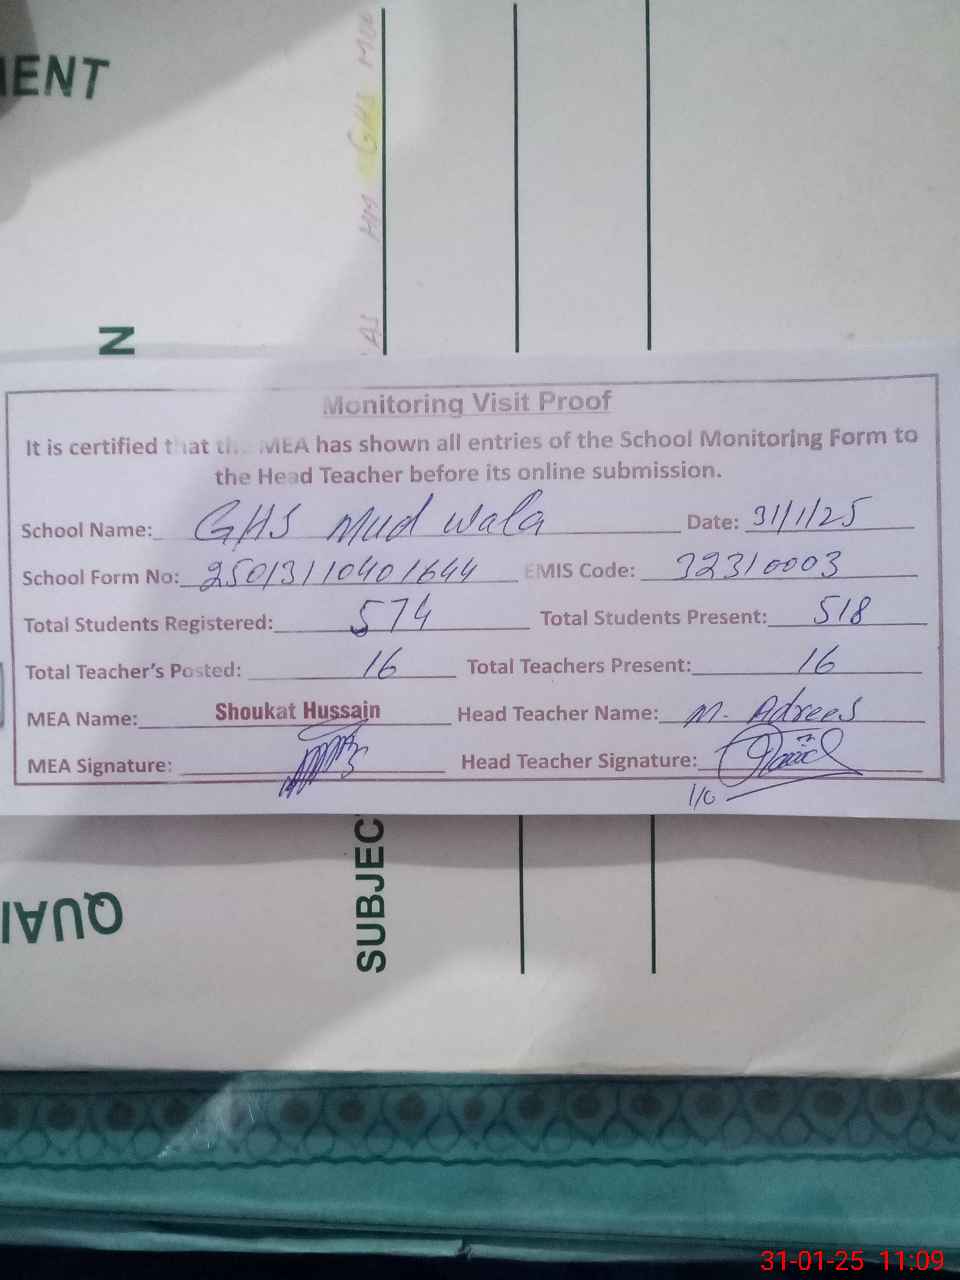 MENT
AS HM GHS MUD
N
Monitoring Visit Proof
It is certified that the MEA has shown all entries of the School Monitoring Form to
the Head Teacher before its online submission.
School Name: GHS Mud wala Date: 31/1/25
School Form No: 25013110401644 EMIS Code: 32310003
Total Students Registered: 574 Total Students Present: 518
Total Teacher's Posted: 16 Total Teachers Present: 16
MEA Name: Shoukat Hussain Head Teacher Name: M. Adrees
MEA Signature: Head Teacher Signature:
I/C
QUAI
SUBJEC
31-01-25 11:09